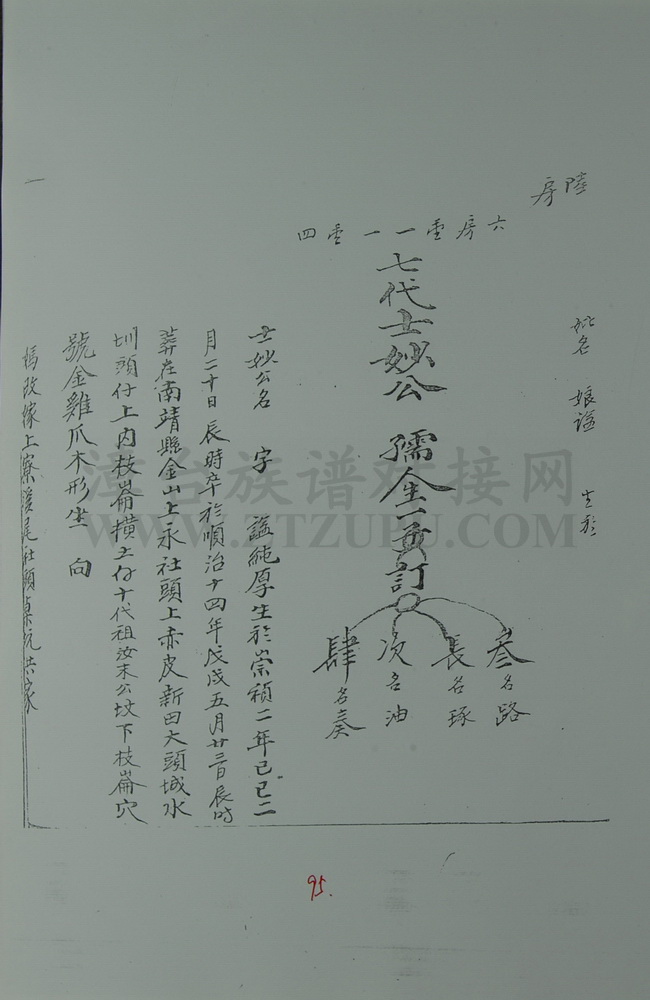 陸房
六房壹一一壹四
妣名 娘謚 生於
七代士妙公 孺全 訂
叁名路
長名琢
次名油
肆名奏
士妙公名 字 謚純厚生於崇禎二年己巳二
月二十日辰時卒於順治十四年戊戌五月廿三日辰时
葬在南靖縣金山上永社頭上赤皮新田大頭城水
圳頭仔上内枝崙横土仔十代祖汝末公坟下枝崙穴
號金雞爪木形坐 向
媽改嫁上寮後尾社頭 洪家
漳台族谱对接网
WWW.ZTZUPU.COM
95.